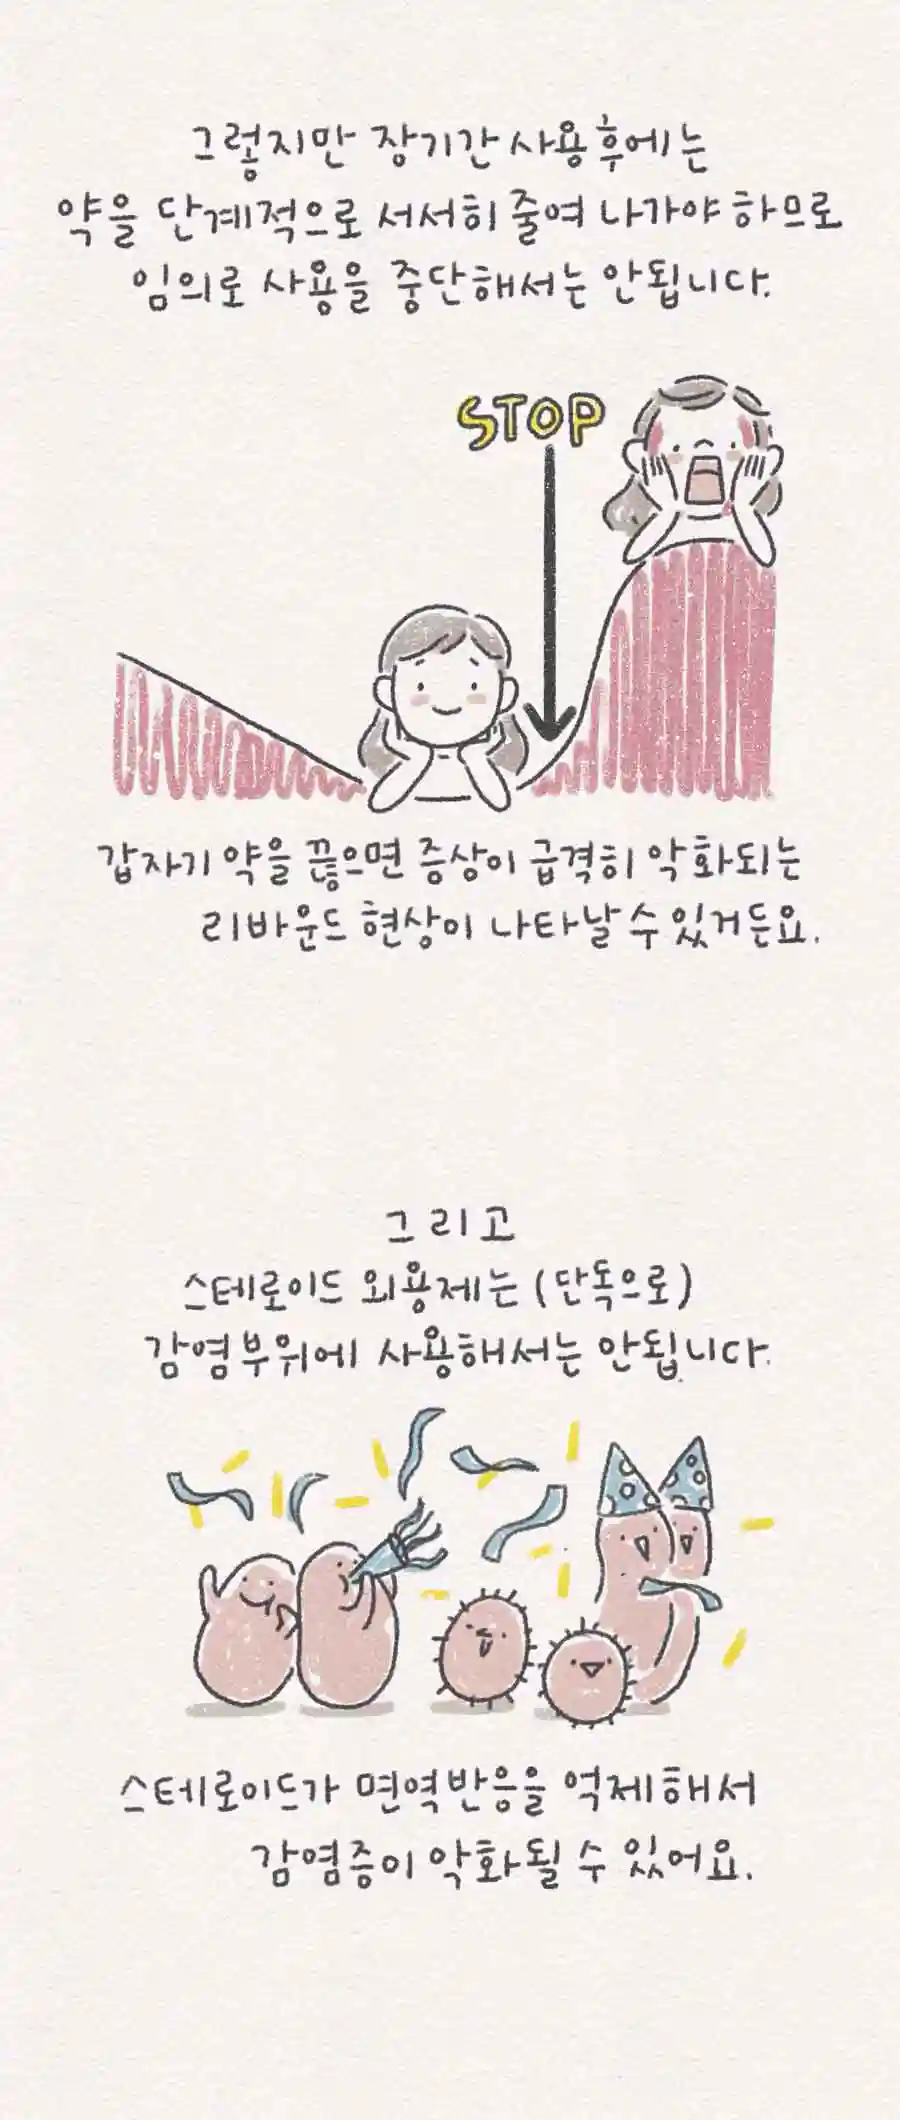 그렇지만 장기간 사용 후에는
약을 단계적으로 서서히 줄여 나가야 하므로
임의로 사용을 중단해서는 안됩니다.
STOP
갑자기 약을 끊으면 증상이 급격히 악화되는
리바운드 현상이 나타날 수 있거든요.
그리고
스테로이드 외용제는 (단독으로)
감염부위에 사용해서는 안됩니다.
스테로이드가 면역반응을 억제해서
감염증이 악화될 수 있어요.